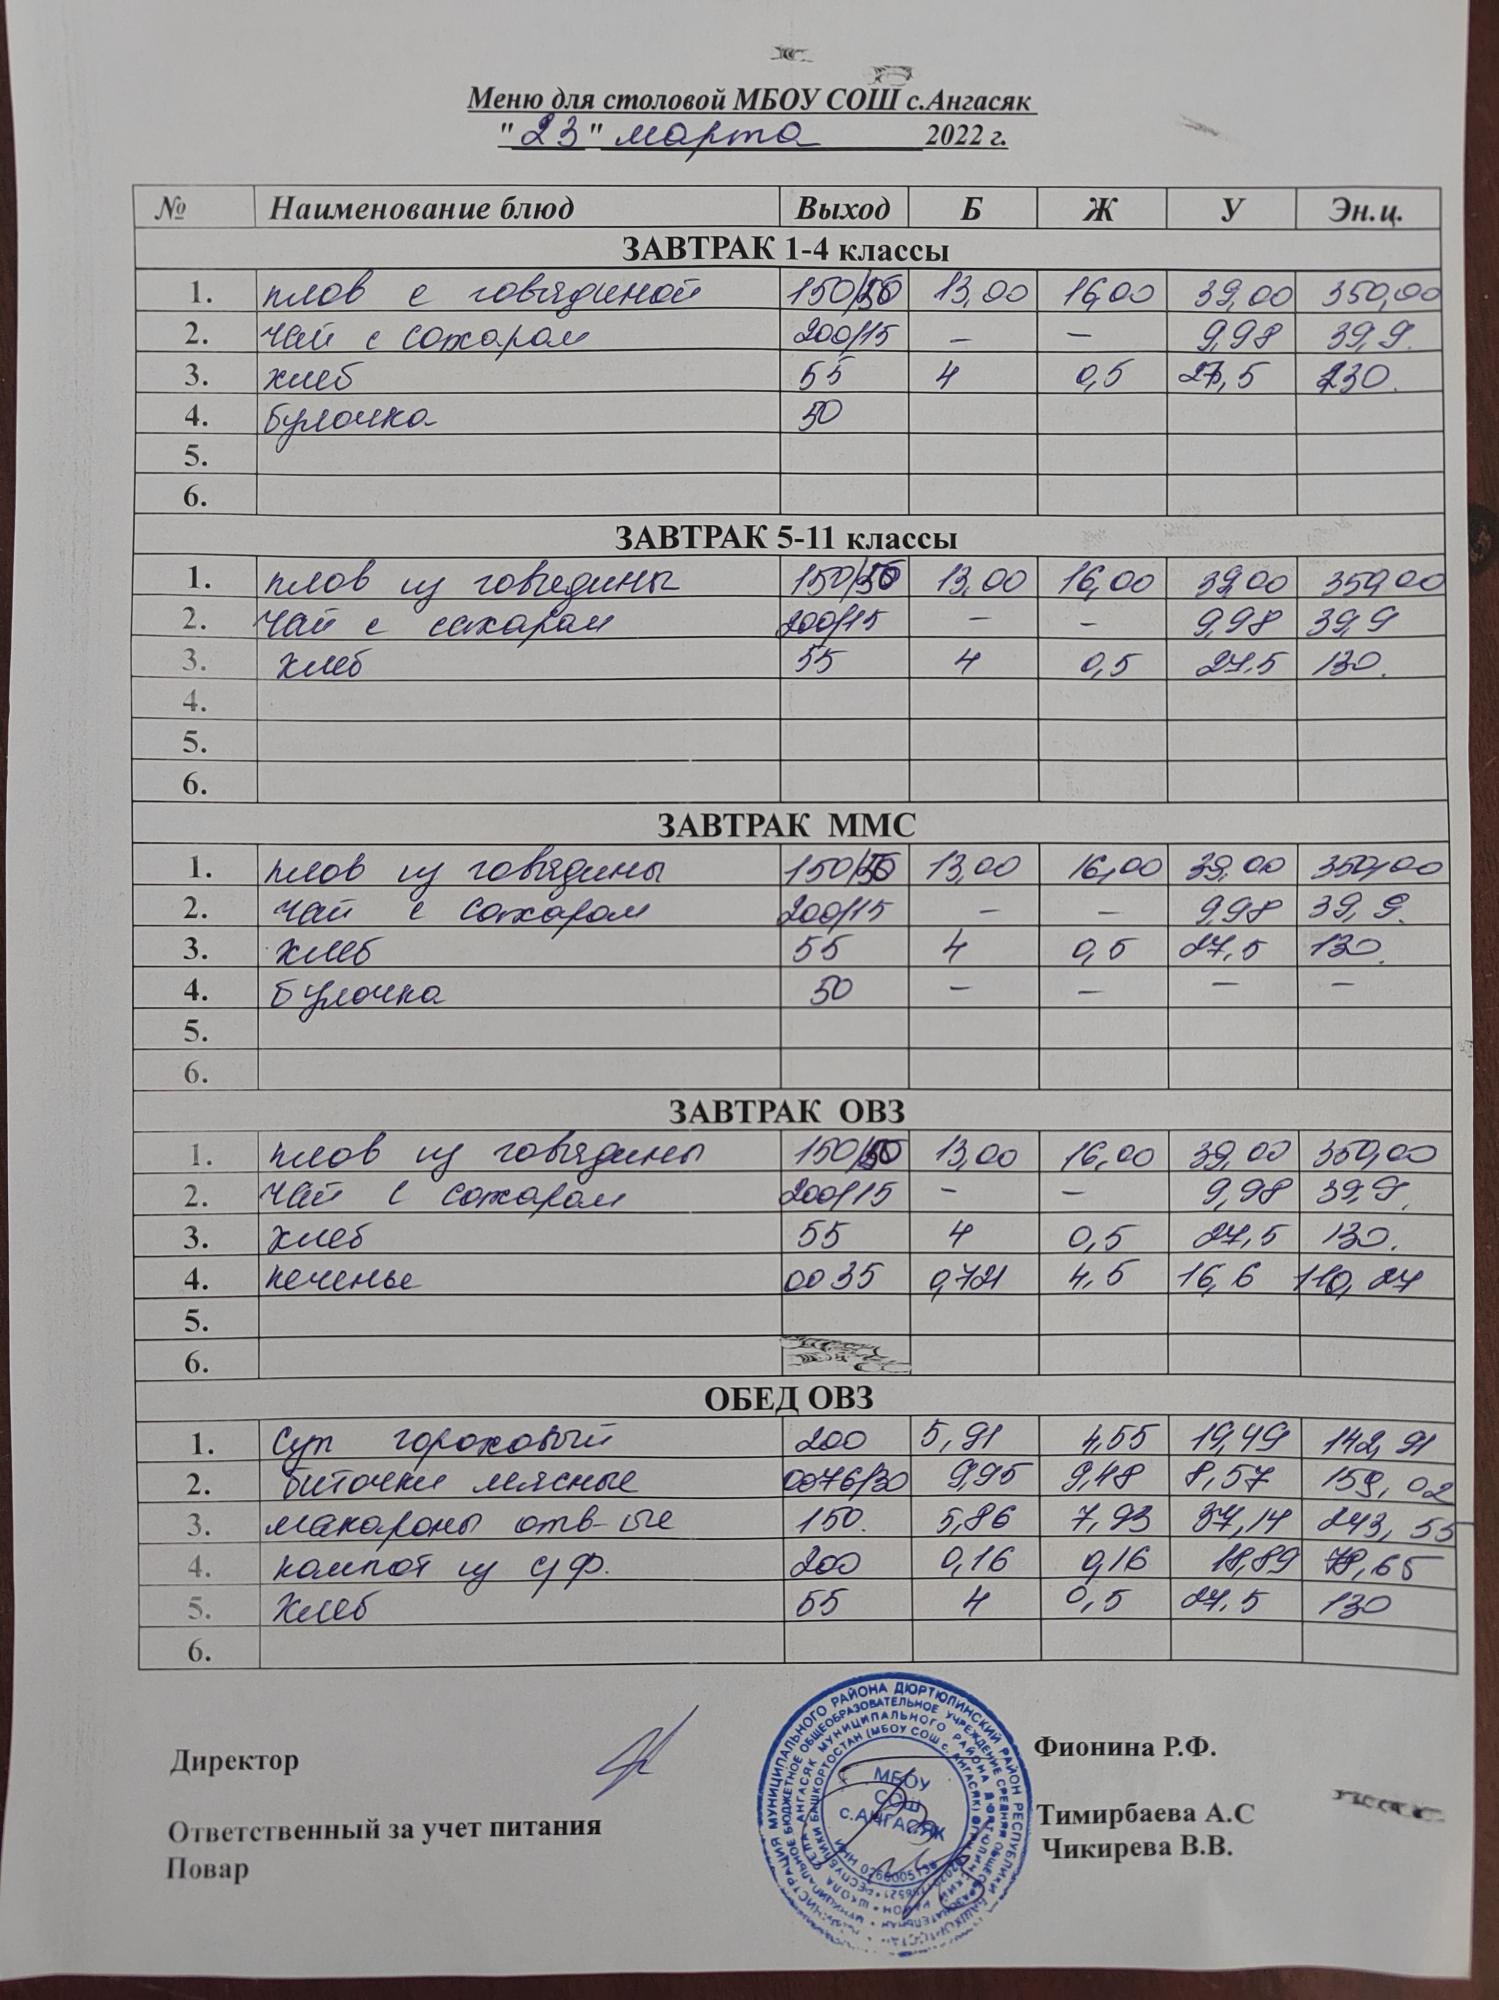 Меню для столовой МБОУ СОШ с.Ангасяк
"23" марта 2022 г.
№ Наименование блюд Выход Б Ж У Эн.ц.
ЗАВТРАК 1-4 классы
1. плов с говядиной 150/50 13,00 16,00 39,00 350,00
2. чай с сахаром 200/15 – – 9,98 39,9.
3. хлеб 55 4 0,5 27,5 130.
4. булочка 50
5.
6.
ЗАВТРАК 5-11 классы
1. плов из говядины 150/50 13,00 16,00 39,00 350,00
2. чай с сахаром 200/15 – – 9,98 39,9
3. хлеб 55 4 0,5 27,5 130.
4.
5.
6.
ЗАВТРАК ММС
1. плов из говядины 150/50 13,00 16,00 39,00 350,00
2. чай с сахаром 200/15 – – 9,98 39,9.
3. хлеб 55 4 0,5 27,5 130.
4. булочка 50 – – – –
5.
6.
ЗАВТРАК ОВЗ
1. плов из говядины 150/50 13,00 16,00 39,00 350,00
2. чай с сахаром 200/15 – – 9,98 39,9.
3. хлеб 55 4 0,5 27,5 130.
4. печенье 0035 0,721 4,5 16,6 110,27
5.
6.
ОБЕД ОВЗ
1. Суп гороховый 200 5,91 4,55 19,49 142,91
2. биточки мясные 0076/30 9,95 9,48 8,57 159,02
3. макароны отв-ые 150. 5,86 7,93 37,14 243,55
4. компот из с/ф. 200 0,16 0,16 18,89 78,65
5. Хлеб 55 4 0,5 27.5 130
6.
Директор Фионина Р.Ф.
Ответственный за учет питания Тимирбаева А.С
Повар Чикирева В.В.
МБОУ
СОШ
с.АНГАСЯК